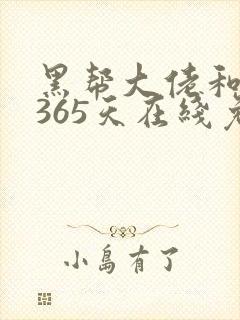 黑帮大佬和
365天在线免
小岛有了